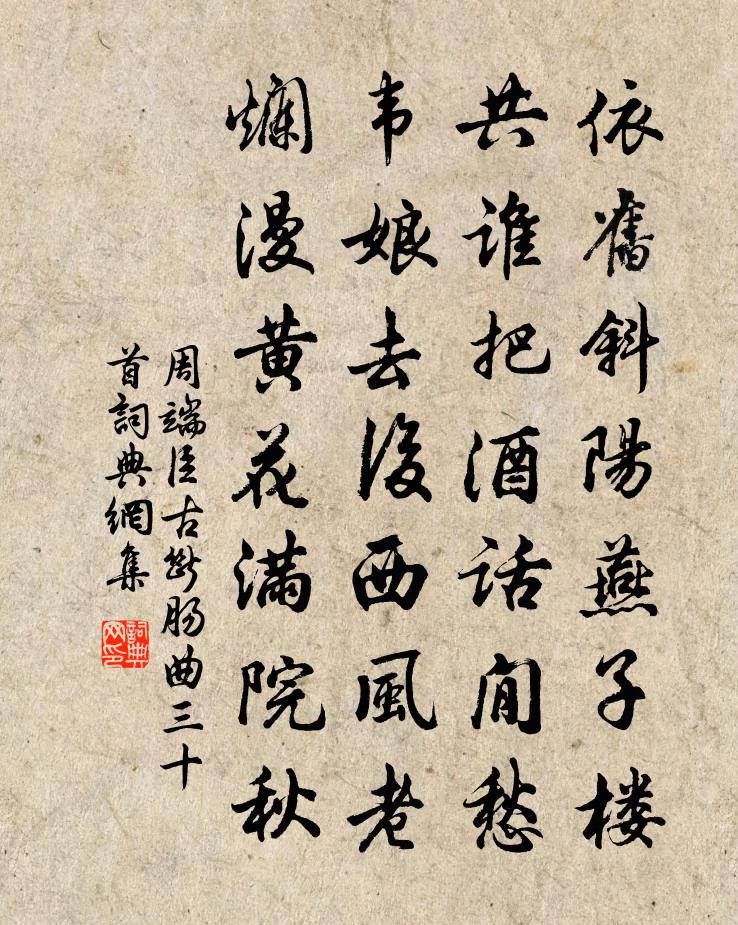 依舊斜陽燕子楼
共谁把酒話閒愁
韦娘去後西風老
爛漫黄花满院秋
周端臣古斷肠曲三十
首詞典網集
詞典
网印